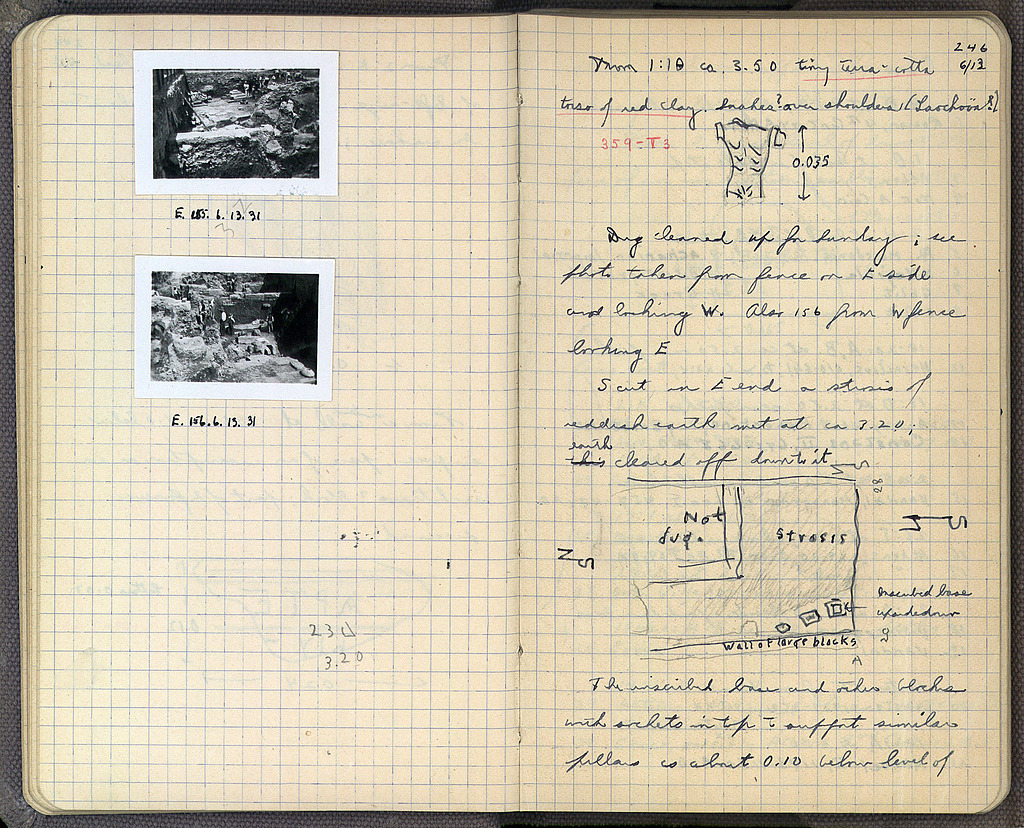 E. 155. 6. 13. 31
E. 156. 6. 13. 31
3.20
246
6/13
From 1:10 ca. 3.50 tiny terra-cotta
torso of red clay. Snakes? over shoulders (Laochoön?)
359-T3
0.035
Dug cleaned up for Sunday; see
photo taken from fence on E side
and looking W. Also 156 from W fence
looking E
S cut in E end a strosis of
reddish earth met at ca 3.20;
earth
this cleared off down to it
Not
dug.
Strosis
N
S
Inscribed base
upside down
Wall of large blocks
A
The inscribed base and other blocks
with sockets in top to support similar
pillars is about 0.10 below level of